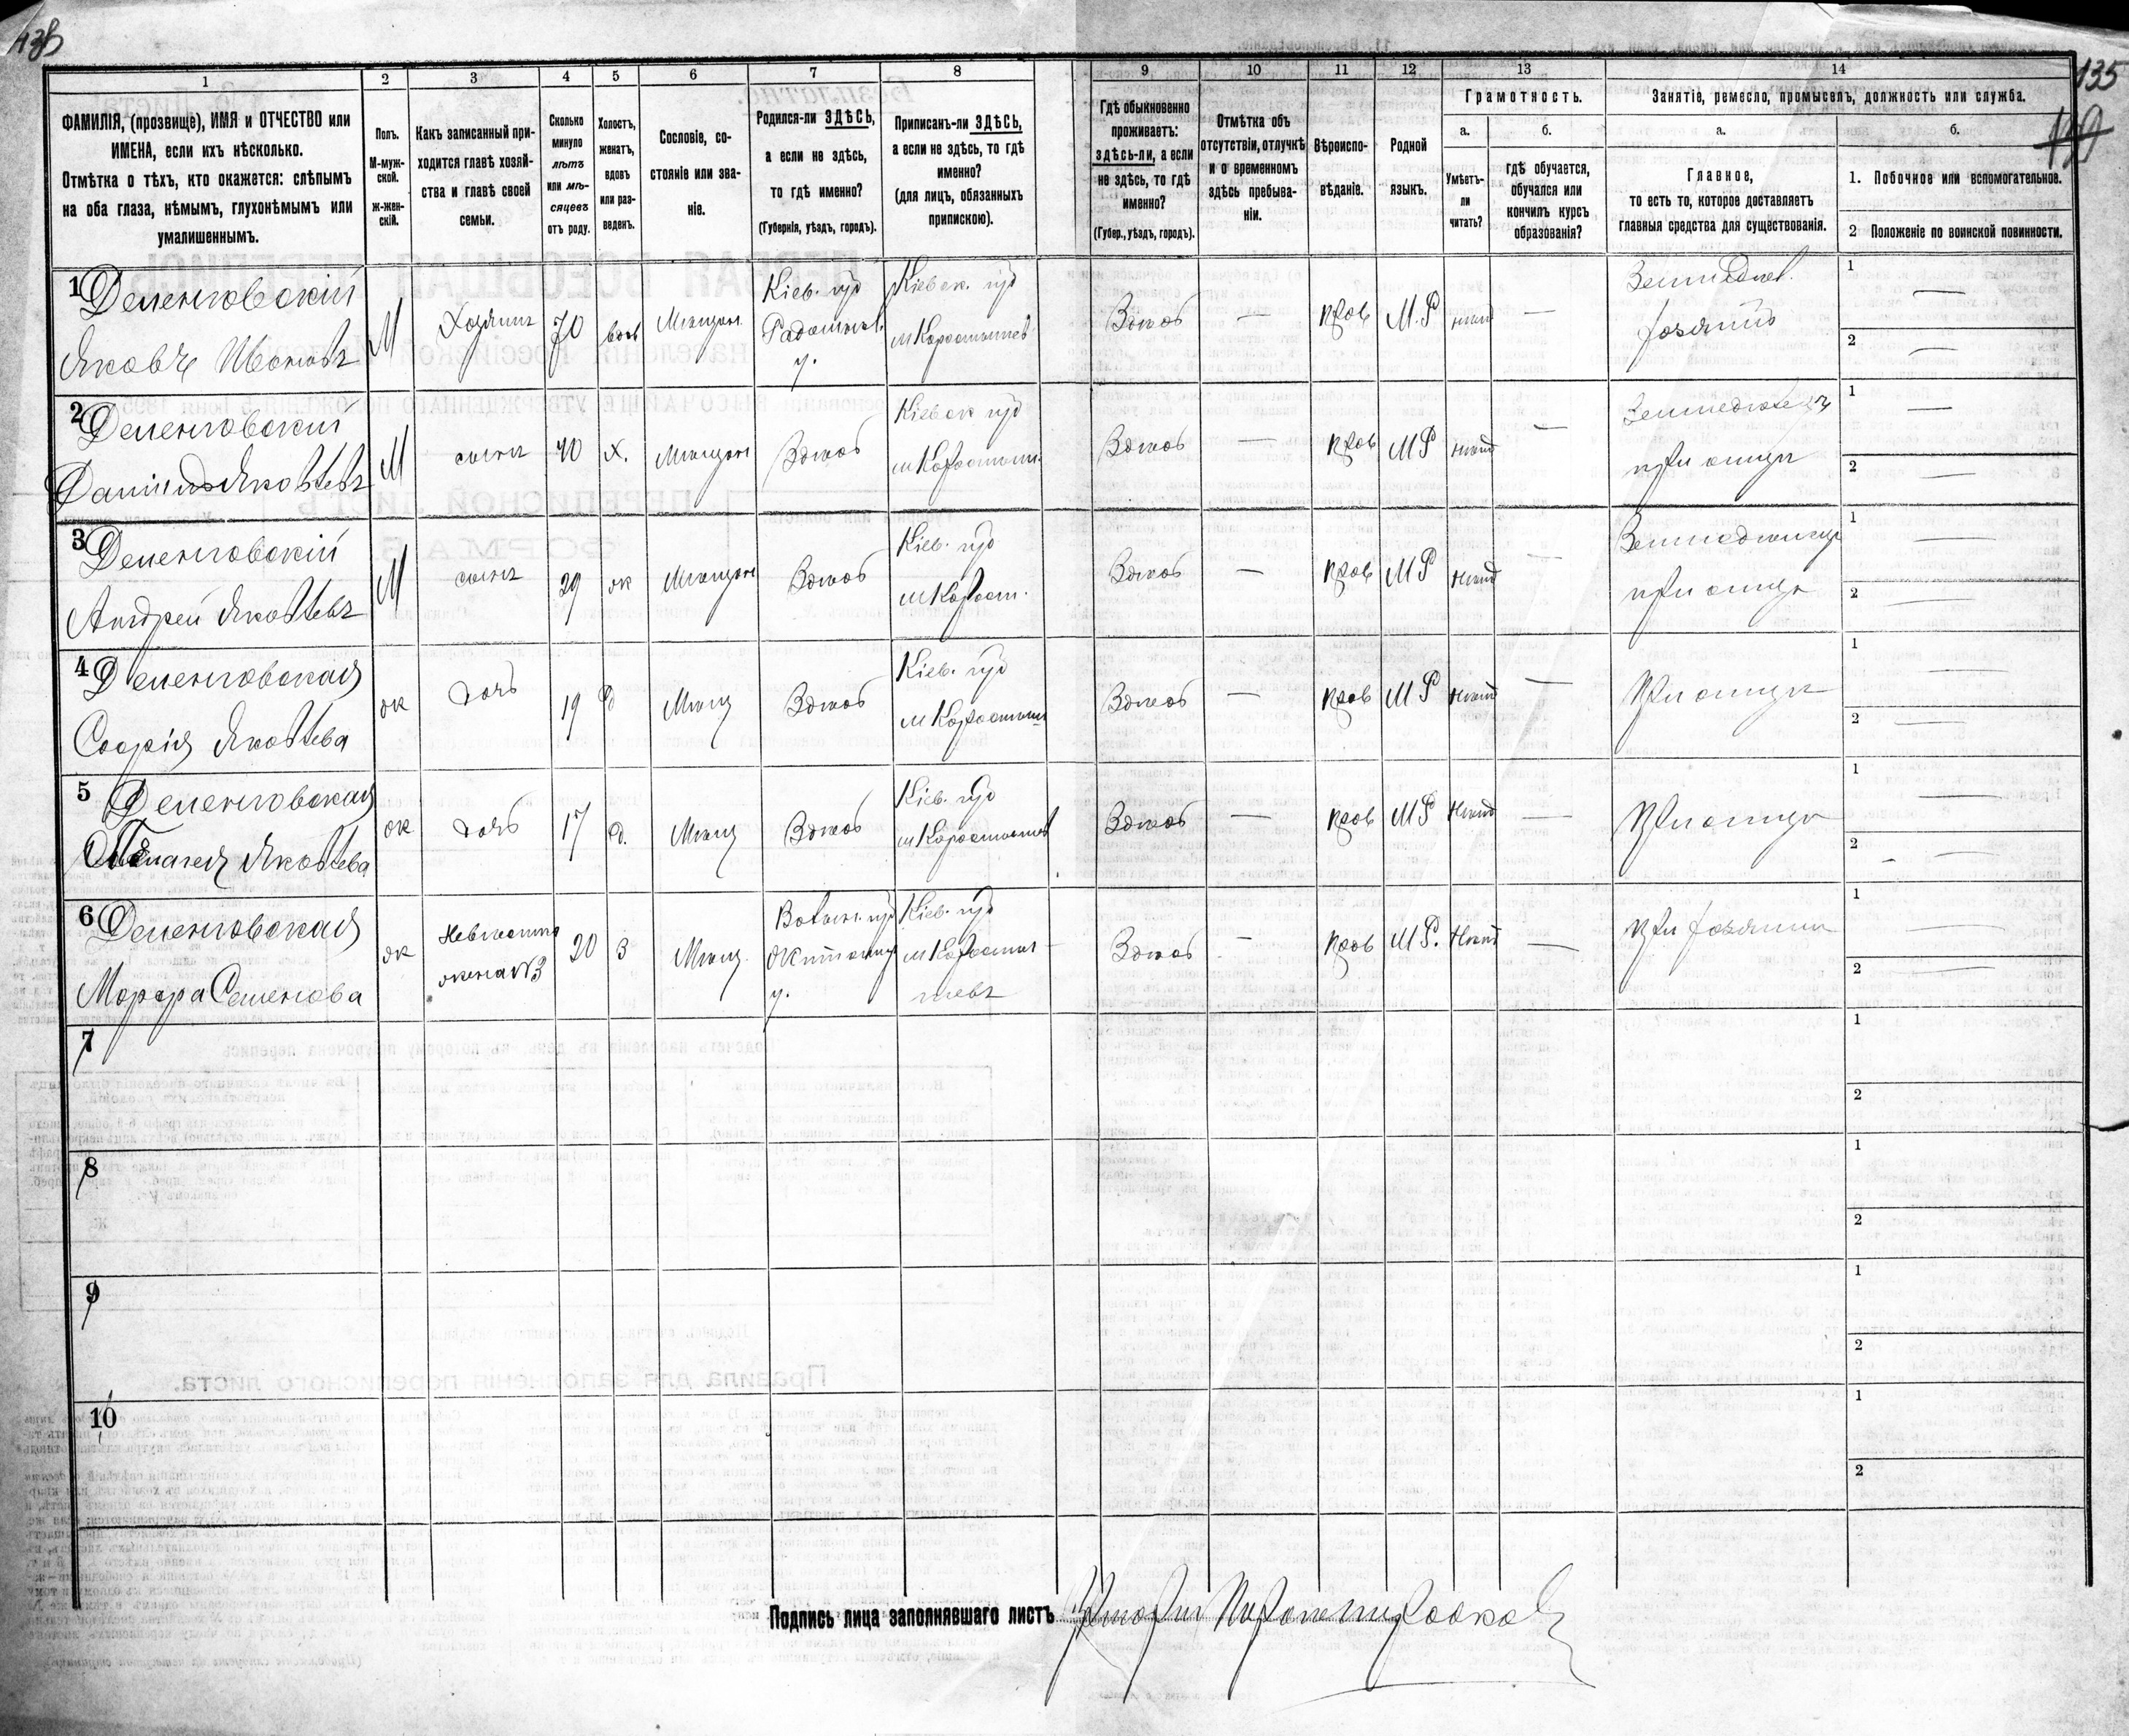 135
1
2
3
4
5
6
7
8
9
10
11
12
13
14
ФАМИЛІЯ, (прозвище), ИМЯ и ОТЧЕСТВО или
ИМЕНА, если ихъ нѣсколько.
Отмѣтка о тѣхъ, кто окажется: слѣпымъ
на оба глаза, нѣмымъ, глухонѣмымъ или
умалишеннымъ.
Полъ.
М-муж-
ской.
ж-жен-
скій.
Какъ записанный при-
ходится главѣ хозяй-
ства и главѣ своей
семьи.
Сколько
минуло
лѣтъ
или мѣ-
сяцевъ
отъ роду.
Холостъ,
женатъ,
вдовъ
или раз-
веденъ.
Сословіе, со-
стояніе или зва-
ніе.
Родился-ли ЗДѢСЬ,
а если не здѣсь,
то гдѣ именно?
(Губернія, уѣздъ, городъ).
Приписанъ-ли ЗДѢСЬ,
а если не здѣсь, то гдѣ
именно?
(для лицъ, обязанныхъ
припискою).
Гдѣ обыкновенно
проживаетъ:
здѣсь-ли, а если
не здѣсь, то гдѣ
именно?
(Губер., уѣздъ, городъ).
Отмѣтка объ
отсутствіи, отлучкѣ
и о временномъ
здѣсь пребыва-
ніи.
Вѣроиспо-
вѣданіе.
Родной
языкъ.
Грамотность.
а.
Умѣетъ-
ли
читать?
б.
гдѣ обучается,
обучался или
кончилъ курсъ
образованія?
Занятіе, ремесло, промыселъ, должность или служба.
а.
Главное,
то есть то, которое доставляетъ
главныя средства для существованія.
б.
1. Побочное или вспомогательное.
2 Положеніе по воинской повинности.
1 Деменговскій
Яковъ Ивановъ
М
Хозяинъ
70
вдов
Мѣщан.
Кіев. губ
Радомысл.
у.
Кіевск. губ
м Коростышев
Здѣсь
—
прав
М.Р
нѣтъ
—
Земледѣл.
хозяинъ
1 —
2 —
2 Деменговскій
Даніилъ Яковлевъ
М
сынъ
40
х.
Мѣщан
Здѣсь
Кіевск губ
м Коростыш.
Здѣсь
—
прав
МР
нѣтъ
—
Земледѣлецъ
при отцѣ
1 —
2 —
3 Деменговскій
Андрей Яковлевъ
М
сынъ
29
ж
Мѣщан
Здѣсь
Кіев. губ
м Корост.
Здѣсь
—
прав
МР
нѣтъ
—
при отцѣ
1 —
2 —
4 Деменговская
Софія Яковлева
ж
дочь
19
д
Мѣщ
Здѣсь
Кіев. губ
м Коростыш
Здѣсь
—
прав
МР
нѣтъ
—
При отцѣ
1 —
2 —
5 Деменговская
Яковлева
ж
дочь
17
д.
Мѣщ
Здѣсь
Кіев. губ
м Коростышев
Здѣсь
—
прав
МР
нѣтъ
—
При отцѣ
1 —
2 —
6 Деменговская
Марфа Семенова
ж
Невѣстка
жена №3
20
З
Мѣщ.
Волын. губ
Житомир
у.
Кіев. губ
м Коросты-
шевъ
Здѣсь
—
прав
МР.
Нѣтъ
—
при хозяинѣ
1 —
2 —
7
1
2
8
1
2
9
1
2
10
1
2
Подпись лица заполнявшаго листъ